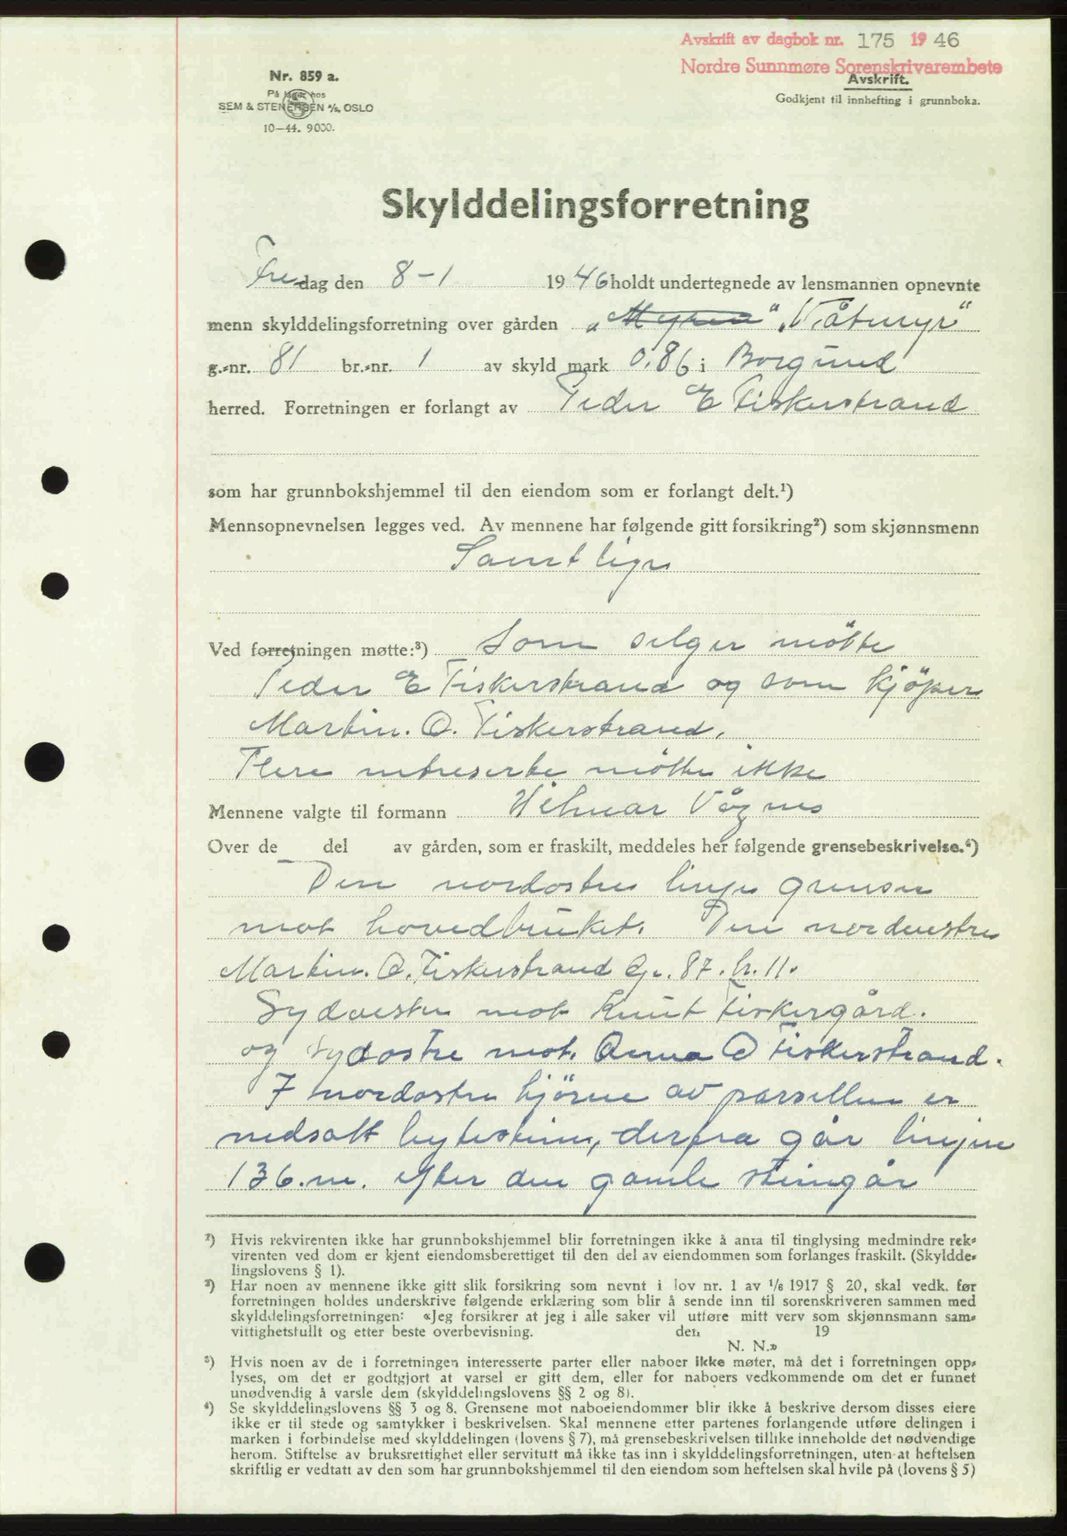 Avskrift av dagbok nr. 175 1946
Nordre Sunnmøre Sorenskrivarembete
Nr. 859 a.
På lager hos
SEM & STENERSEN A/S, OSLO
10-44. 9000.
Avskrift.
Godkjent til innhefting i grunnboka.
Skylddelingsforretning
Fredag den 8-1 1946 holdt undertegnede av lensmannen opnevnte
menn skylddelingsforretning over gården „Myren" „Våtmyr"
g.-nr. 81 br.-nr. 1 av skyld mark 0.86 i Borgund
herred. Forretningen er forlangt av Peder E Fiskerstrand
som har grunnbokshjemmel til den eiendom som er forlangt delt.¹)
Mennsopnevnelsen legges ved. Av mennene har følgende gitt forsikring²) som skjønnsmenn
Samtlige
Ved forretningen møtte:³) Som selger møtte
Peder E Fiskerstrand og som kjøper
Martin. O. Fiskerstrand.
Flere intreserte møtte ikke
Mennene valgte til formann Hilmar Vågnes
Over de del av gården, som er fraskilt, meddeles her følgende grensebeskrivelse.⁴)
Den nordostre linje grenser
mot hovedbruket. Den nordvestre
Martin. O. Fiskerstrand Gr. 87. br. 11.
Sydvestre mot Knut Fiskergård.
og sydostre mot. Anna O Fiskerstrand.
I nordostre hjörne av parsellen er
nedsatt bytestein, derfra går linjen
136. m. efter den gamle steingår
¹) Hvis rekvirenten ikke har grunnbokshjemmel blir forretningen ikke å anta til tinglysing medmindre rek-
virenten ved dom er kjent eiendomsberettiget til den del av eiendommen som forlanges fraskilt. (Skyldde-
lingslovens § 1).
²) Har noen av mennene ikke gitt slik forsikring som nevnt i lov nr. 1 av 1/6 1917 § 20, skal vedk. før
forretningen holdes underskrive følgende erklæring som blir å sende inn til sorenskriveren sammen med
skylddelingsforretningen: «Jeg forsikrer at jeg i alle saker vil utføre mitt verv som skjønnsmann sam-
vittighetsfullt og etter beste overbevisning. den 19
N. N.»
³) Hvis noen av de i forretningen interesserte parter eller naboer ikke møter, må det i forretningen opp-
lyses, om det er godtgjort at varsel er gitt dem, eller for naboers vedkommende om det er funnet
unødvendig å varsle dem (skylddelingslovens §§ 2 og 8).
⁴) Se skylddelingslovens §§ 3 og 8. Grensene mot naboeiendommer blir ikke å beskrive dersom disses eiere
ikke er til stede og samtykker i beskrivelsen. Skal mennene etter partenes forlangende utføre delingen i
marken i forbindelse med skylddelingen (lovens § 7), må grensebeskrivelsen tillike inneholde det nødvendige
herom. Stiftelse av bruksrettighet eller servitutt må ikke tas inn i skylddelingsforretningen, uten at heftelsen
skriftlig er vedtatt av den som har grunnbokshjemmel til den eiendom som heftelsen skal hvile på (lovens § 5)